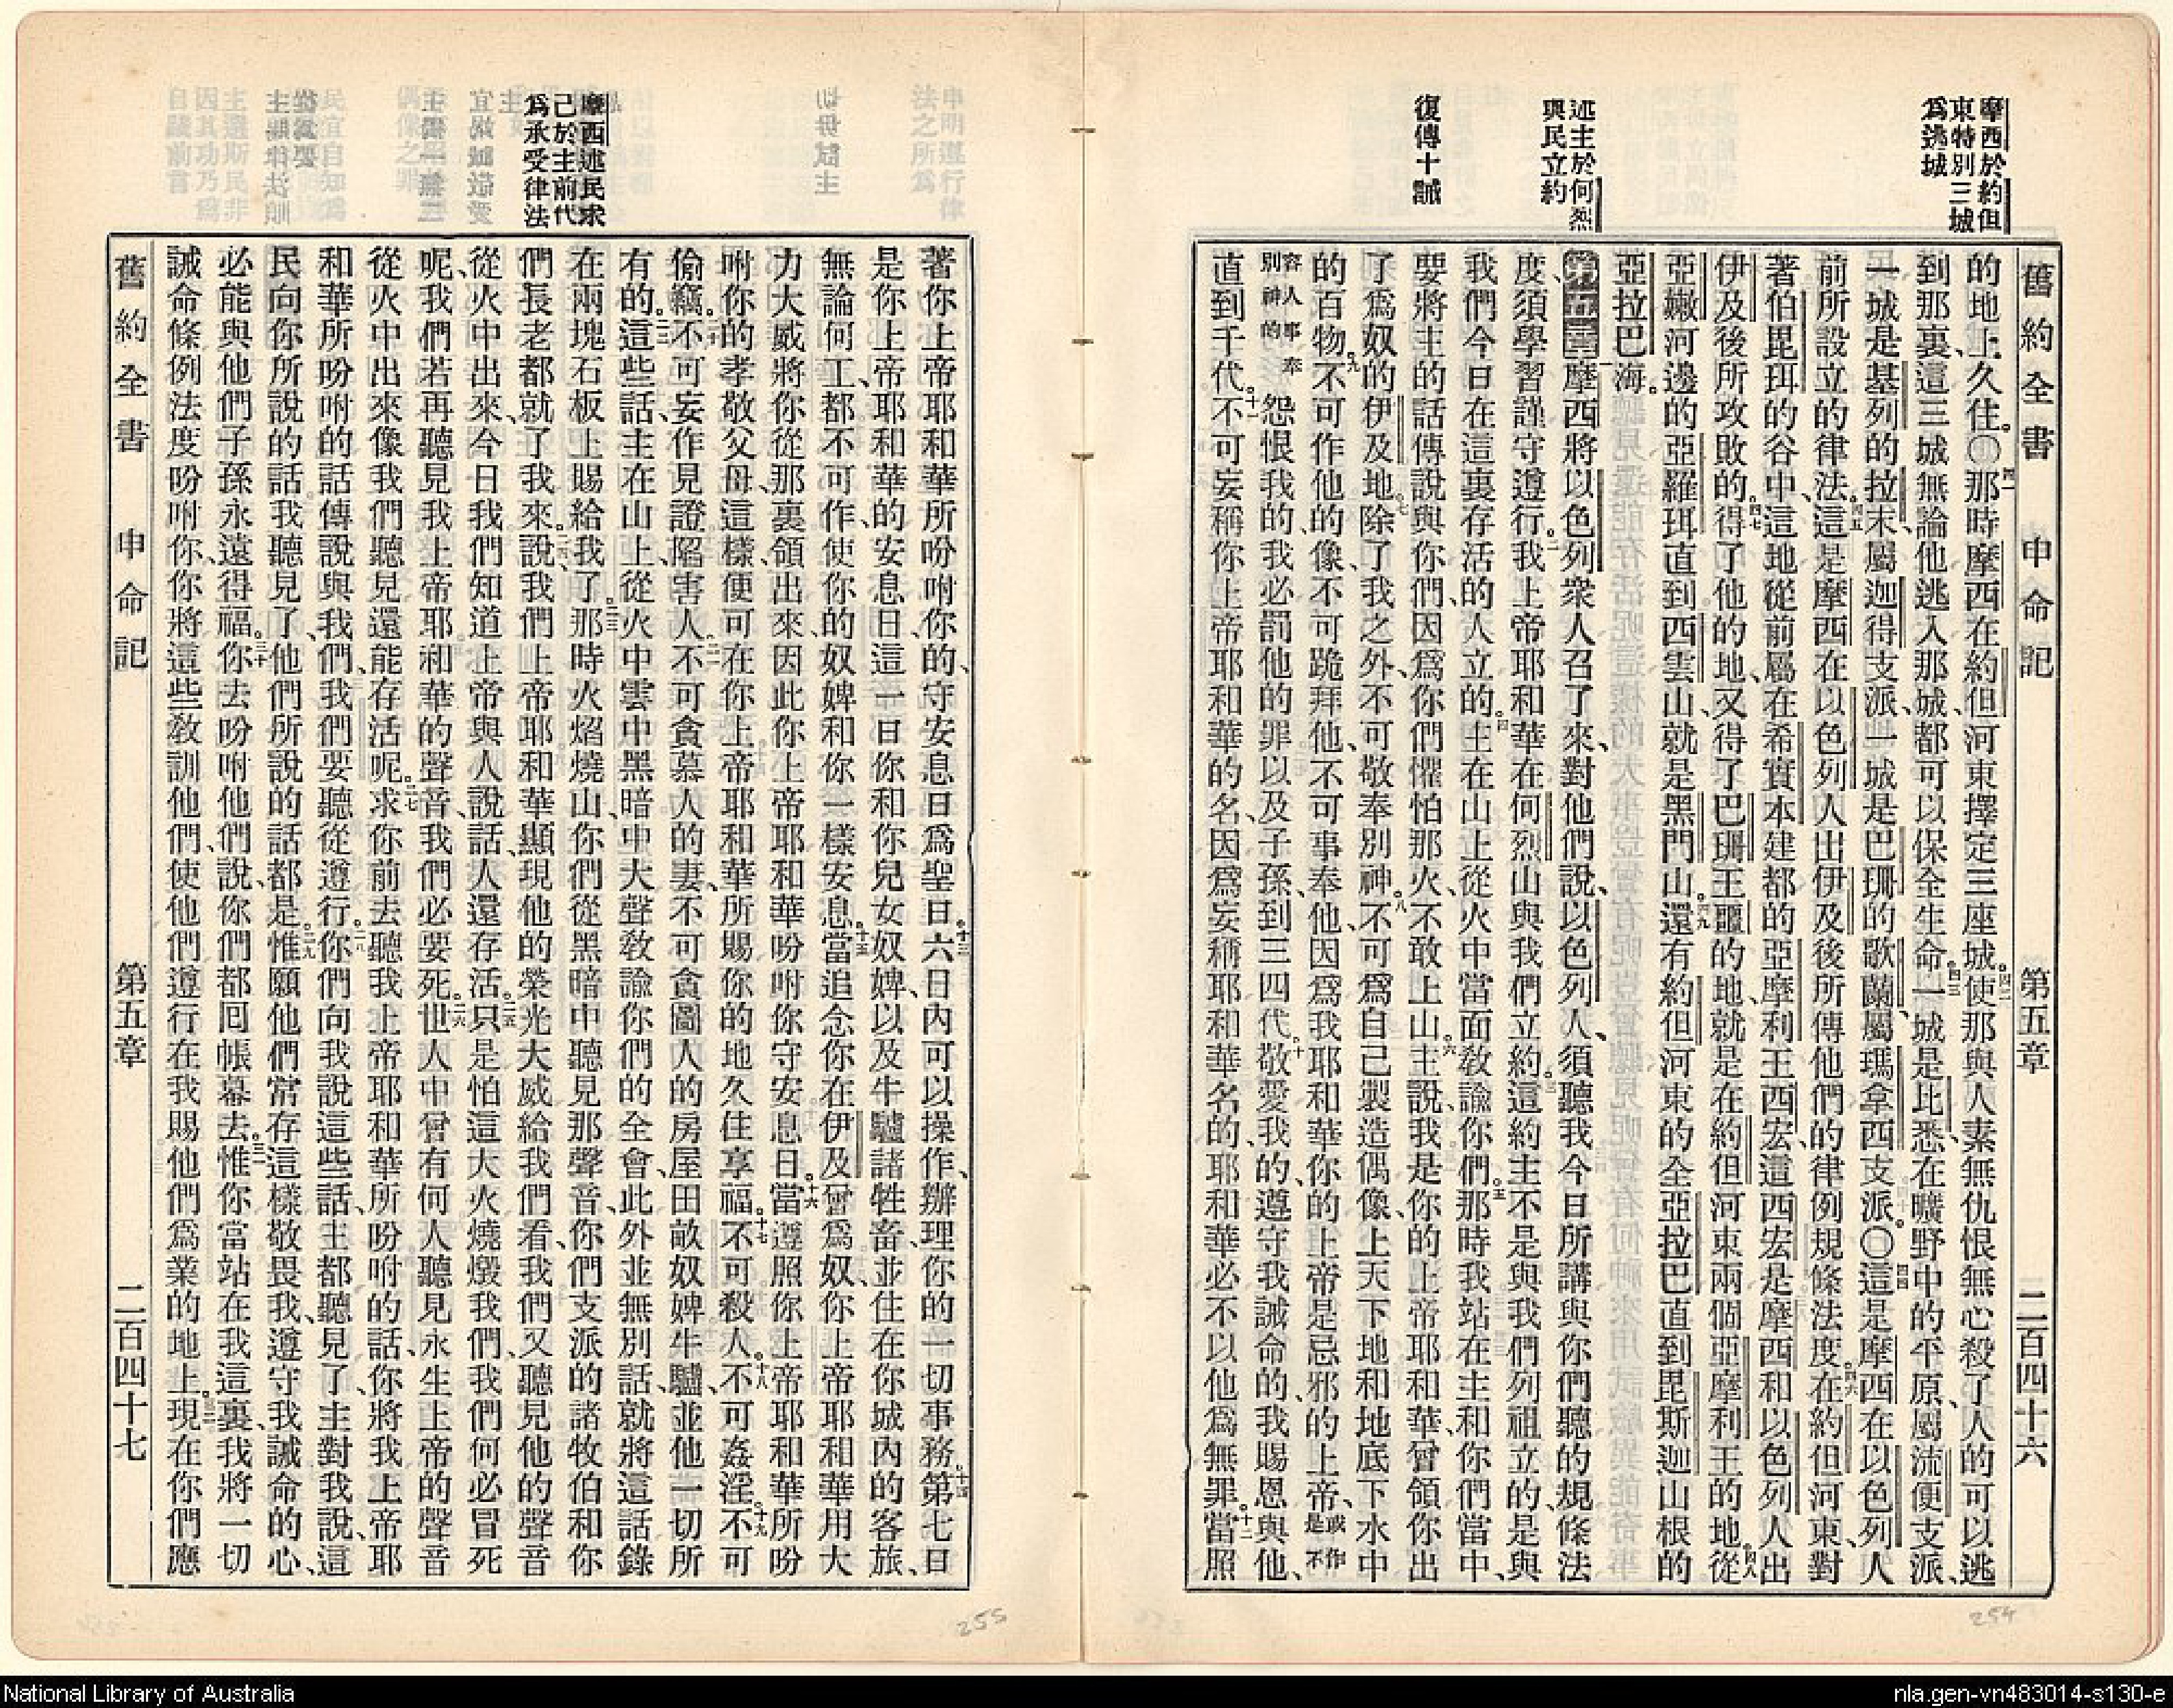 摩西於約但
東特別三城
爲逃城
述主於何烈
與民立約
復傳十誡
舊約全書 申命記 第五章 二百四十六
的地上久住。〇四一那時摩西在約但河東擇定三座城。四二使那與人素無仇恨無心殺了人的可以逃
到那裏、這三城無論他逃入那城、都可以保全生命。四三一城是比悉、在曠野中的平原、屬流便支派、
一城是基列的拉末、屬迦得支派、一城是巴珊的歌蘭、屬瑪拿西支派。〇四四這是摩西在以色列人
前所設立的律法。四五這是摩西在以色列人出伊及後所傳他們的律例規條法度。四六在約但河東、對
著伯毘珥的谷中、這地從前屬在希實本建都的亞摩利王西宏、這西宏是摩西和以色列人出
伊及後所攻敗的。四七得了他的地、又得了巴珊王噩的地、就是在約但河東兩個亞摩利王的地。四八從
亞嫩河邊的亞羅珥直到西雲山、就是黑門山。四九還有約但河東的全亞拉巴、直到毘斯迦山根的
亞拉巴海。
第五章 一摩西將以色列衆人召了來、對他們說、以色列人、須聽我今日所講與你們聽的規條法
度、須學習謹守遵行。二我上帝耶和華在何烈山與我們立約。三這約主不是與我們列祖立的、是與
我們今日在這裏存活的人立的。四主在山上從火中當面敎諭你們。五那時我站在主和你們當中、
要將主的話傳說與你們、因爲你們懼怕那火、不敢上山。六主說、我是你的上帝耶和華、曾領你出
了爲奴的伊及地。七除了我之外、不可敬奉別神。八不可爲自己製造偶像、上天下地和地底下水中
的百物。九不可作他的像、不可跪拜他、不可事奉他、因爲我耶和華你的上帝是忌邪的上帝、或作是不
容人事奉別神的 怨恨我的、我必罰他的罪以及子孫、到三四代。十敬愛我的、遵守我誡命的、我賜恩與他、
直到千代。十一不可妄稱你上帝耶和華的名、因爲妄稱耶和華名的、耶和華必不以他爲無罪。十二當照
摩西述民求
己於主前代
爲承受律法
著你上帝耶和華所吩咐你的、守安息日爲聖日。十三六日內可以操作、辦理你的一切事務。十四第七日
是你上帝耶和華的安息日、這一日你和你兒女奴婢、以及牛驢諸牲畜、並住在你城內的客旅、
無論何工、都不可作、使你的奴婢和你一樣安息。十五當追念你在伊及曾爲奴、你上帝耶和華用大
力大威將你從那裏領出來、因此你上帝耶和華吩咐你守安息日。十六當遵照你上帝耶和華所吩
咐你的孝敬父母、這樣、便可在你上帝耶和華所賜你的地久住享福。十七不可殺人。十八不可姦淫。十九不可
偷竊。二十不可妄作見證陷害人。二一不可貪慕人的妻、不可貪圖人的房屋田畝奴婢牛驢、並他一切所
有的。二二這些話、主在山上、從火中雲中黑暗中大聲敎諭你們的全會、此外並無別話、就將這話錄
在兩塊石板上賜給我了。二三那時火焰燒山、你們從黑暗中聽見那聲音、你們支派的諸牧伯和你
們長老都就了我來。二四說、我們上帝耶和華顯現他的榮光大威給我們看、我們又聽見他的聲音
從火中出來、今日我們知道上帝與人說話、人還存活。二五只是怕這大火燒燬我們、我們何必冒死
呢、我們若再聽見我上帝耶和華的聲音、我們必要死。二六世人中曾有何人聽見永生上帝的聲音
從火中出來、像我們聽見還能存活呢。二七求你前去聽我上帝耶和華所吩咐的話、你將我上帝耶
和華所吩咐的話傳說與我們、我們要聽從遵行。二八你們向我說這些話、主都聽見了、主對我說、這
民向你所說的話、我聽見了、他們所說的話都是。二九惟願他們常存這樣敬畏我、遵守我誡命的心、
必能與他們子孫永遠得福。三十你去吩咐他們說、你們都囘帳幕去。三一惟你當站在我這裏、我將一切
誡命條例法度吩咐你、你將這些敎訓他們、使他們遵行在我賜他們爲業的地上。三二現在你們應
舊約全書 申命記 第五章 二百四十七
254
255
National Library of Australia
nla.gen-vn483014-s130-e